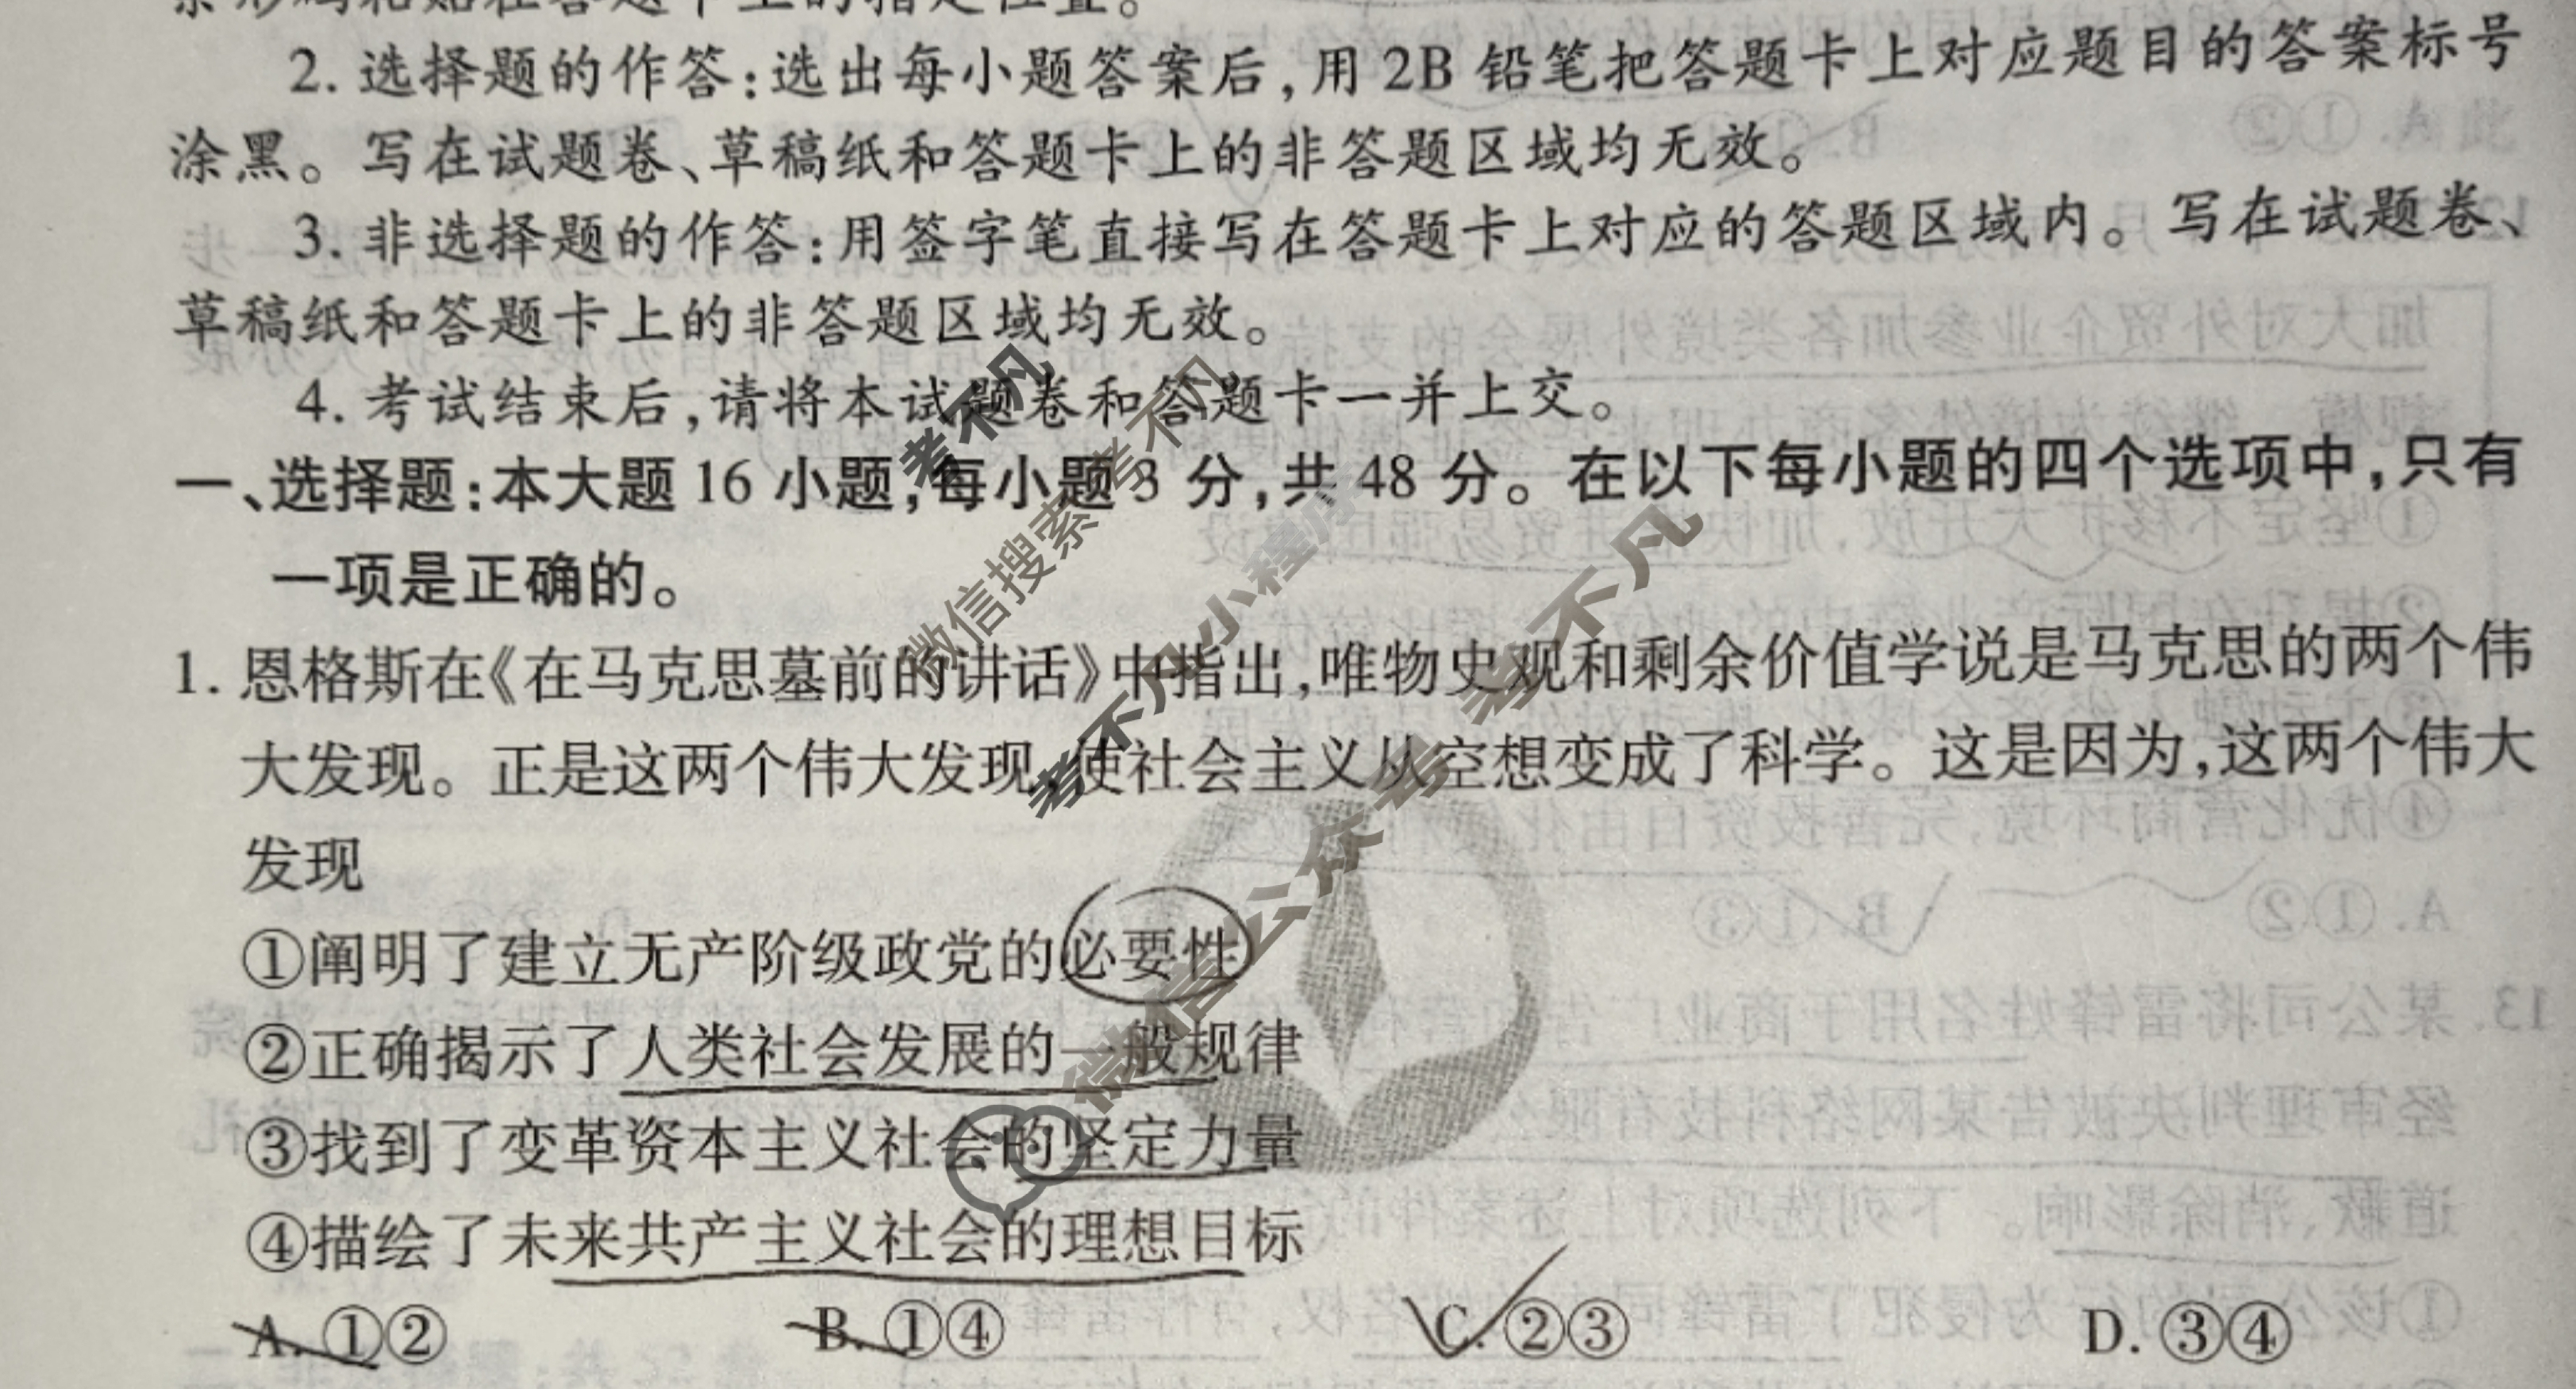 2. 选择题的作答:选出每小题答案后,用 2B 铅笔把答题卡上对应题目的答案标号
涂黑。写在试题卷、草稿纸和答题卡上的非答题区域均无效。
3. 非选择题的作答:用签字笔直接写在答题卡上对应的答题区域内。写在试题卷、
草稿纸和答题卡上的非答题区域均无效。
4. 考试结束后,请将本试题卷和答题卡一并上交。
一、选择题:本大题 16 小题,每小题 3 分,共 48 分。在以下每小题的四个选项中,只有
一项是正确的。
1. 恩格斯在《在马克思墓前的讲话》中指出,唯物史观和剩余价值学说是马克思的两个伟
大发现。正是这两个伟大发现,使社会主义从空想变成了科学。这是因为,这两个伟大
发现
①阐明了建立无产阶级政党的必要性
②正确揭示了人类社会发展的一般规律
③找到了变革资本主义社会的坚定力量
④描绘了未来共产主义社会的理想目标
A. ①② B. ①④ C. ②③ D. ③④
考不凡
微信搜索 考不凡
考不凡小程序
微信公众号 考不凡